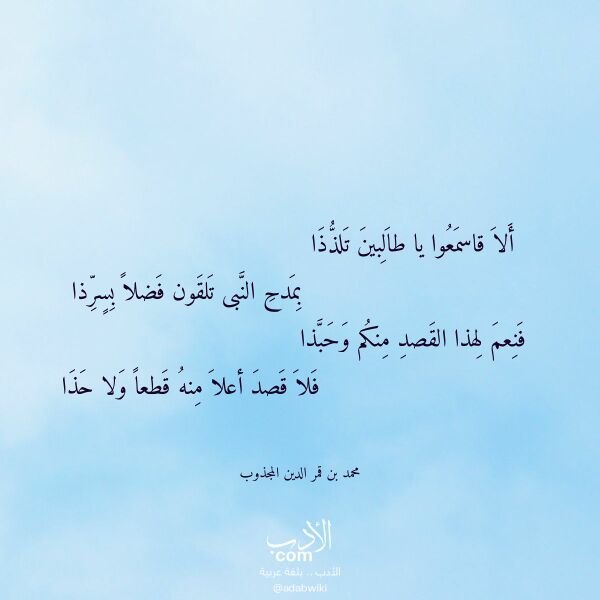 أَلاَ قاسمَعُوا يا طاَلِبينَ تَلذُّذَا
بِمَدحِ النَّبى تَلقَون فَضلاً بِسٍرِّذا
فَنِعمَ لِهذا القَصدِ مِنكُم وَحَبَّذا
فَلاَ قَصدَ أعلاَ مِنهُ قَطعاً وَلا حَذَا
محمد بن قمر الدين المجذوب
الأدب
com
الأدب .. بلغة عربية
@adabwiki